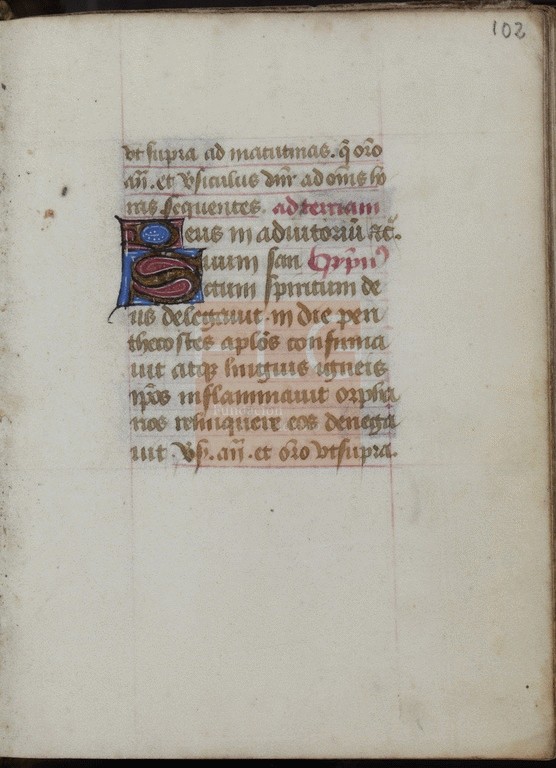 102
vt supra ad matutinas. q̄ oro
añ. et v̄siculus dnr̄ ad om̄s ho
ras sequentes. ad terciam
Deus in adiutoriū ⁊c̄.
Suum san hỹpn⁹
ctum spiritum de
us delegauit in die pen
thecostes aplōs confirma
uit atq̄ linguis igneis
ip̄os inflammauit orpha
nos relinquere eos denega
uit. v̄s. añ. et oro vt supra.
Fundación